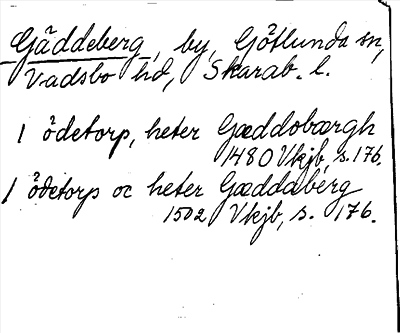 Gäddeberg, by, Götlunda sn,
Vadsbo hd, Skarab. l.
1 ödetorp, heter Gæddobærgh
1480 Vkjb, s. 176.
1 ödetorp oc heter Gæddaberg
1502 Vkjb, s. 176.